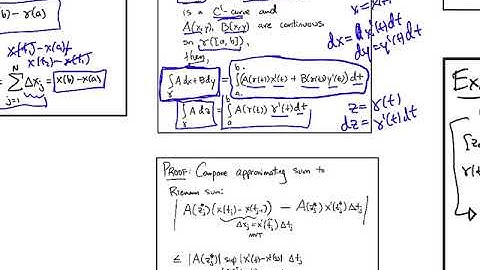 b) − γ(a)
x(t_j) − x(t_{j-1})
= \sum_{j=1}^{N} Δx_j = x(b) − x(a)
is a C¹-curve and
A(x,y), B(x,y) are continuous
on γ([a,b]),
then,
∫_γ A dx + B dy = ∫_a^b (A(γ(t)) x'(t) + B(γ(t)) y'(t)) dt
∫_γ A dz = ∫_a^b A(γ(t)) γ'(t) dt
dx = x'(t) dt
dy = y'(t) dt
z = γ(t)
dz = γ'(t) dt
PROOF: Compare approximating sum to
Riemann sum:
| A(z_j^*) (x(t_j) − x(t_{j-1})) − A(z_j^*) x'(t_j^*) Δt_j |
Δx_j = x'(t̃_j) Δt_j
MVT
≤ |A(z_j^*)| sup |x'(t) − x'(s)| Δt_j
Ex